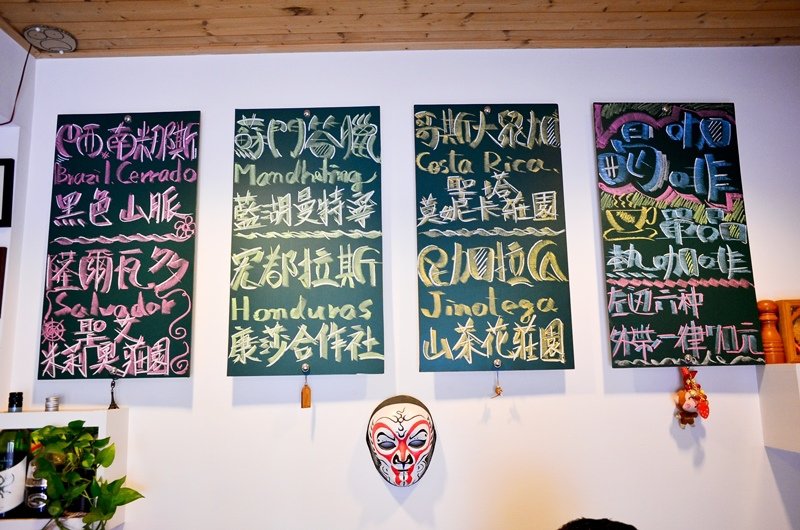 巴西.南米那斯
Brazil Cerrado
黑色山脈
薩爾瓦多
Salvador
聖文
朱莉奧莊園
蘇門答臘
Mandheling
藍湖曼特寧
宏都拉斯
Honduras
康莎合作社
哥斯大黎加
Costa Rica.
聖塔
莫妮卡莊園
尼加拉瓜
Jinotega
山茶花莊園
喝咖
啡
單品
熱咖啡
左边六种
一律70元